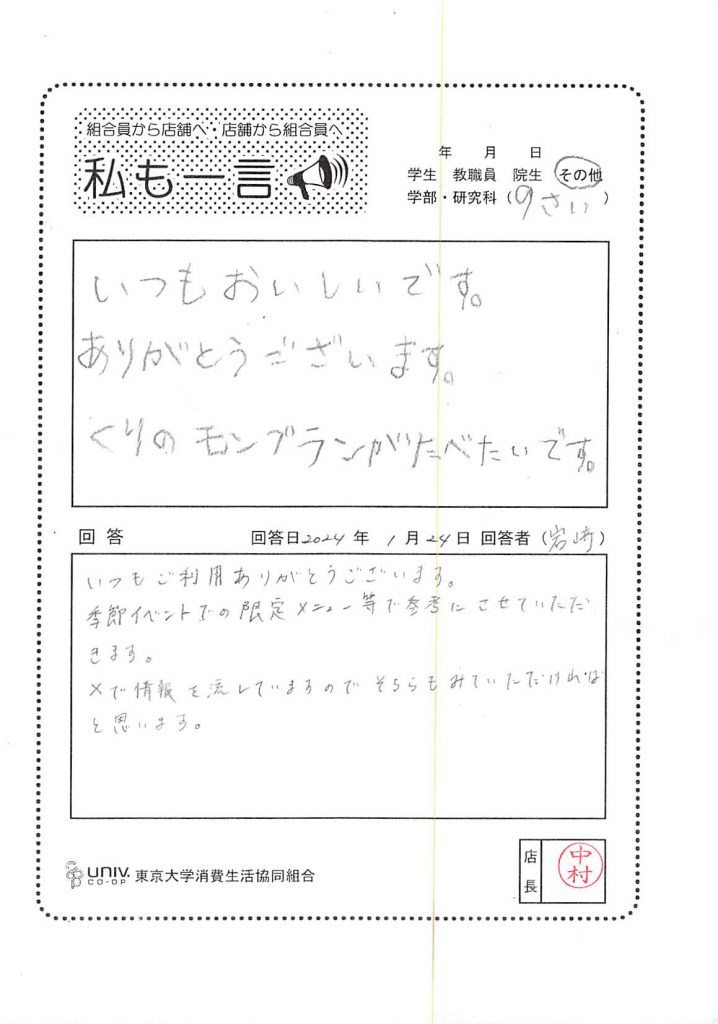 組合員から店舗へ・店舗から組合員へ
私も一言
年 月 日
学生 教職員 院生 その他
学部・研究科（9さい）
いつもおいしいです。
ありがとうございます。
くりのモンブランがたべたいです。
回答 回答日2024年1月24日 回答者（岩崎）
いつもご利用ありがとうございます。
季節イベントでの限定メニュー等で参考にさせていただ
きます。
Xで情報を流していますのでそちらもみていただければ
と思います。
UNIV.
CO-OP
東京大学消費生活協同組合
店長
中村